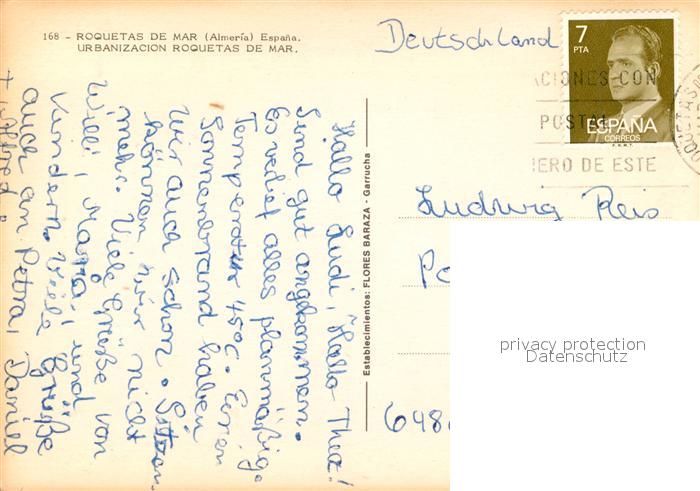 168 - ROQUETAS DE MAR (Almería) España.
URBANIZACION ROQUETAS DE MAR.
Deutschland
7
PTA
ESPAÑA
CORREOS
ACIONES CON
POSTAL
ERO DE ESTE
Hallo Ludi, Hallo Thea!
Sind gut angekommen.
Es verlief alles planmäßig.
Temperatur 45°C. Einen
Sonnenbrand haben
wir auch schon. Sitzen
können wir nicht
mehr. Viele Grüße von
Willi, Maria, und
Kindern. Viele Grüße
auch an Petra, Daniel
+
Establecimientos: FLORES BARAZA - Garrucha
Ludwig Reis
648
privacy protection
Datenschutz